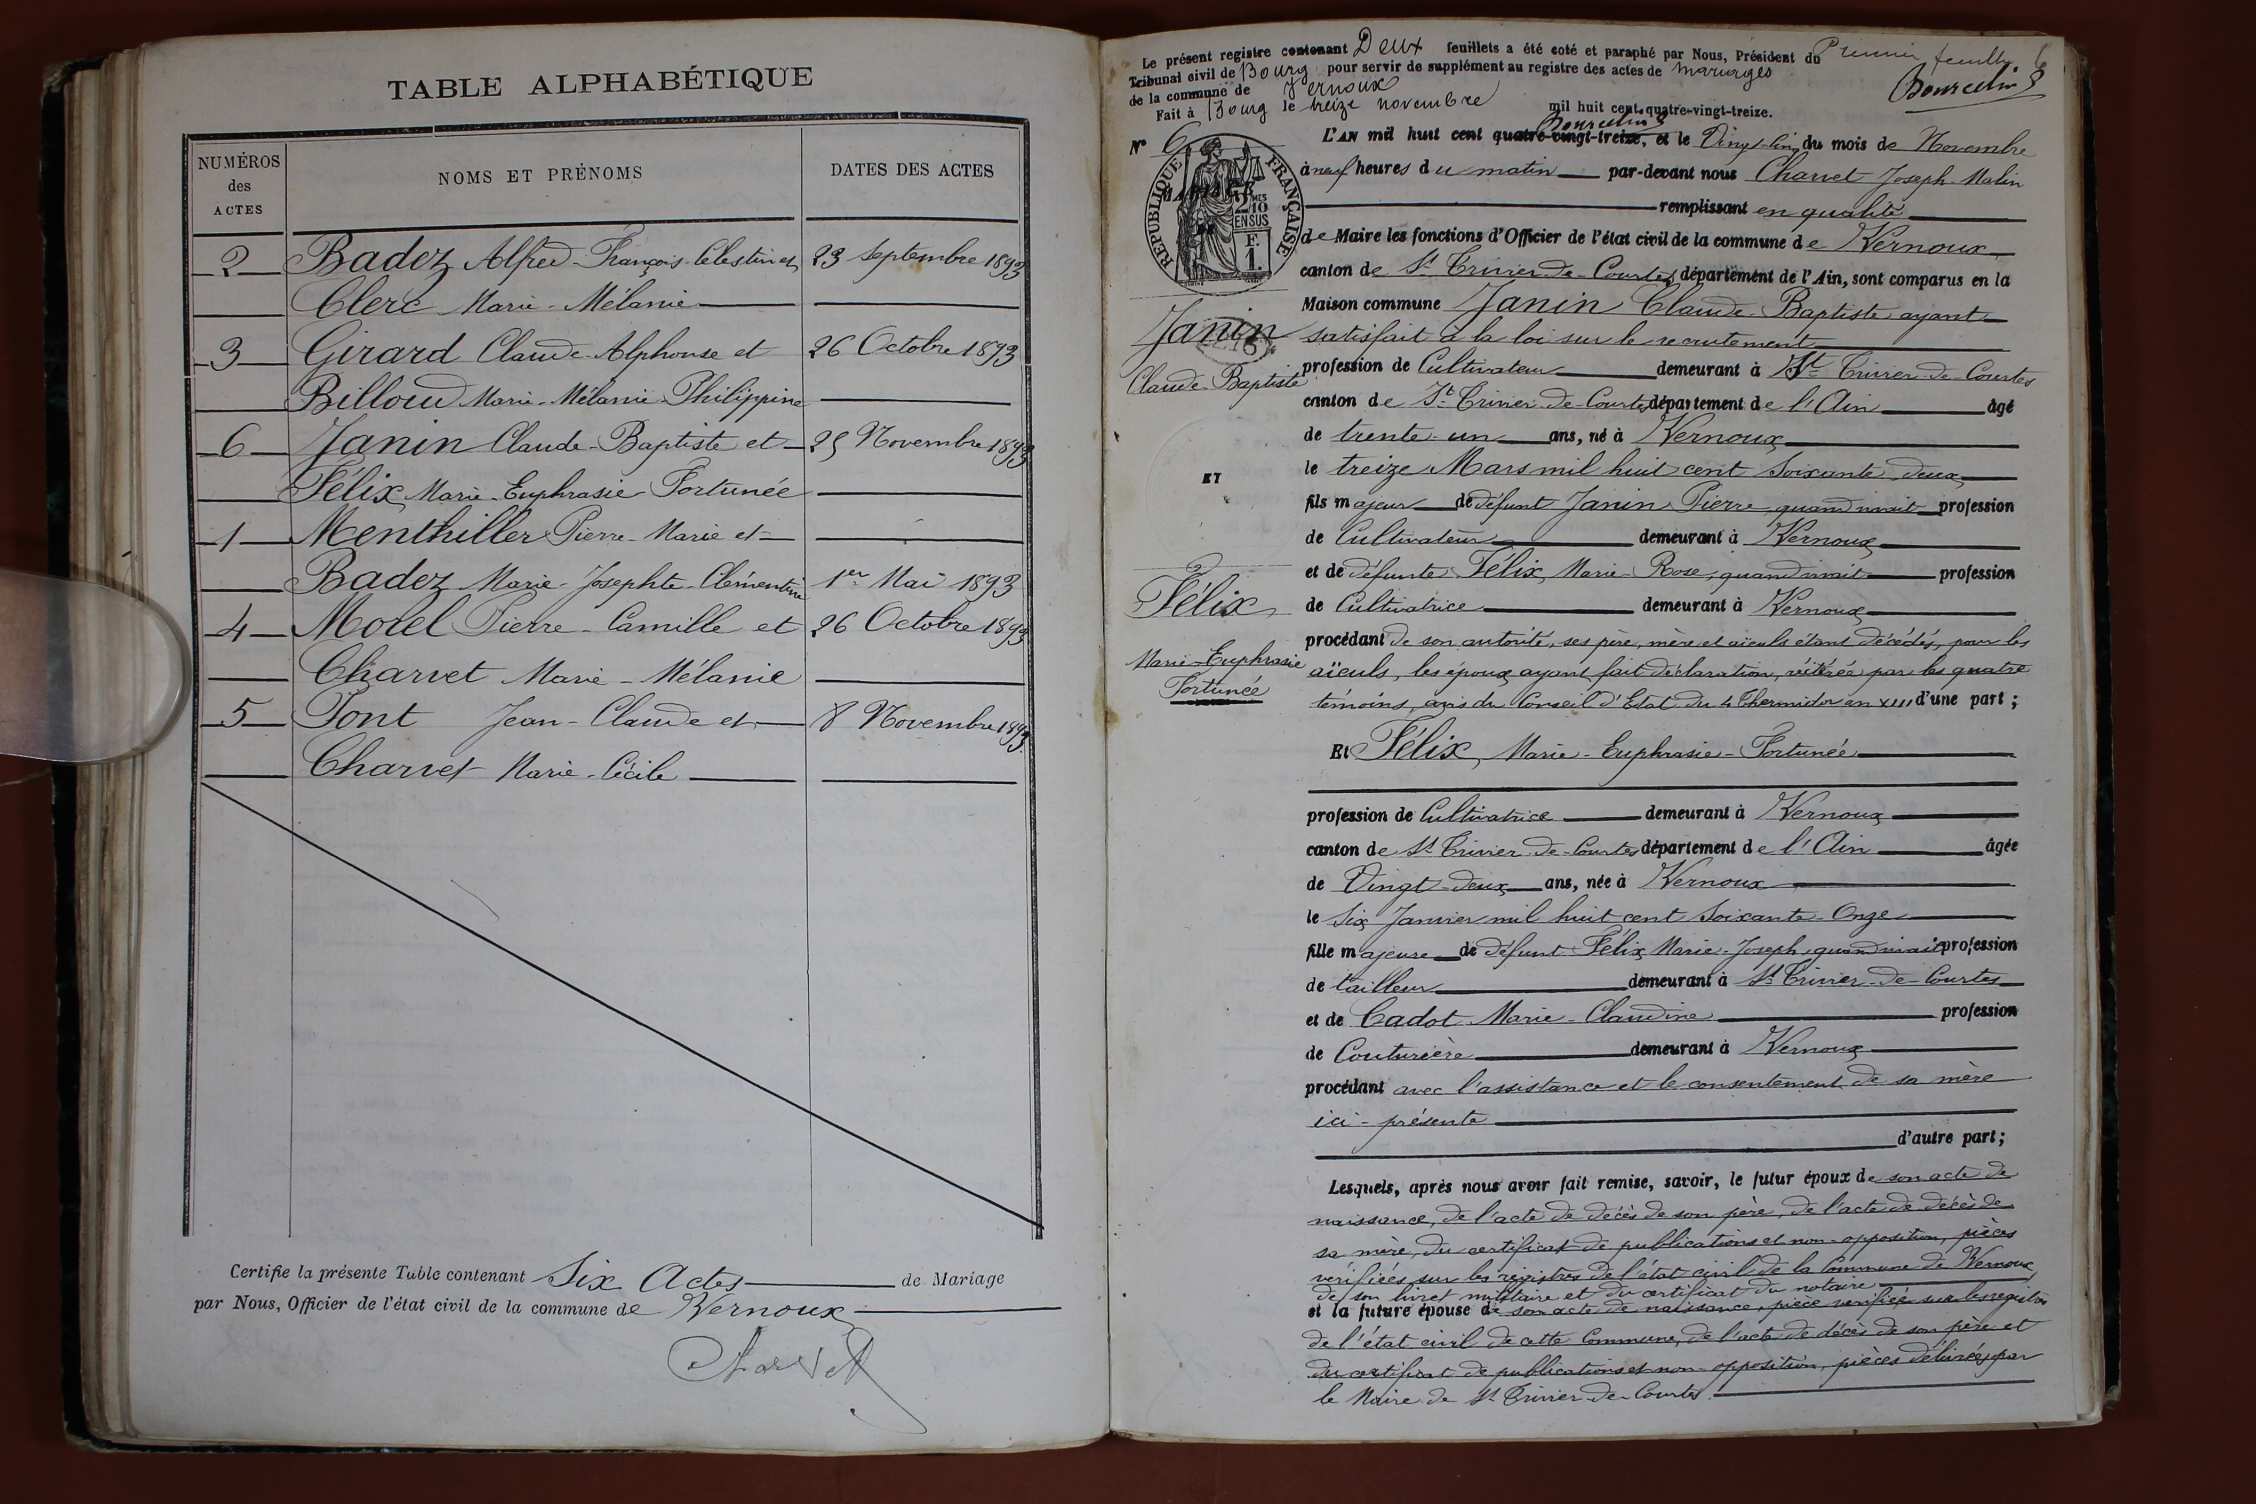 TABLE ALPHABÉTIQUE
NUMÉROS des ACTES
NOMS ET PRÉNOMS
DATES DES ACTES
2 Badez Alfred-François-Célestin et 23 Septembre 1893
Clerc Marie-Mélanie
3 Girard Claude-Alphonse et 26 Octobre 1893
Billoud Marie-Mélanie-Philippine
6 Janin Claude-Baptiste et 25 Novembre 1893
Félix Marie-Euphrasie Fortunée
1 Menthiller Pierre-Marie et
Badez Marie-Josephte-Clémentine 1er Mai 1893
4 Morel Pierre-Camille et 26 Octobre 1893
Charvet Marie-Mélanie
5 Pont Jean-Claude et 8 Novembre 1893
Charvet Marie-Cécile
Certifie la présente Table contenant Six Actes de Mariage
par Nous, Officier de l'état civil de la commune de Vernoux
Charvet
Le présent registre contenant Deux feuillets a été coté et paraphé par Nous, Président du
Tribunal civil de Bourg pour servir de supplément au registre des actes de mariages
de la commune de Vernoux
Fait à Bourg le treize novembre mil huit cent quatre-vingt-treize.
Premier feuillet
N° 6
RÉPUBLIQUE FRANÇAISE
2/10 EN SUS
F. 1.
Janin
Claude-Baptiste
ET
Félix
Marie-Euphrasie
Fortunée
L'AN mil huit cent quatre-vingt-treize, et le Vingt-cinq du mois de Novembre
à neuf heures du matin par-devant nous Charvet Joseph-Malin
remplissant en qualité
de Maire les fonctions d'Officier de l'état civil de la commune de Vernoux
canton de St Trivier-de-Courtes, département de l'Ain, sont comparus en la
Maison commune Janin Claude-Baptiste ayant
satisfait à la loi sur le recrutement
profession de Cultivateur demeurant à St Trivier-de-Courtes
canton de St Trivier-de-Courtes département de l'Ain âgé
de trente-un ans, né à Vernoux
le treize Mars mil huit cent soixante-deux
fils majeur de défunt Janin Pierre quand vivait profession
de Cultivateur demeurant à Vernoux
et de défunte Félix Marie-Rose, quand vivait profession
de Cultivatrice demeurant à Vernoux
procédant de son autorité, ses père, mère et aïeuls étant décédés, pour les
aïeuls, les époux ayant fait déclaration, réitérée par les quatre
témoins, avis du Conseil d'Etat du 4 Thermidor an XIII d'une part ;
Et Félix, Marie-Euphrasie-Fortunée
profession de Cultivatrice demeurant à Vernoux
canton de St Trivier-de-Courtes département de l'Ain âgée
de Vingt-deux ans, née à Vernoux
le six Janvier mil huit cent soixante-onze
fille majeure de défunt Félix Marie-Joseph, quand vivait profession
de tailleur demeurant à St Trivier-de-Courtes
et de Cadot Marie-Claudine profession
de Couturière demeurant à Vernoux
procédant avec l'assistance et le consentement de sa mère
ici-présente
d'autre part ;
Lesquels, après nous avoir fait remise, savoir, le futur époux de son acte de
naissance, de l'acte de décès de son père, de l'acte de décès de
sa mère, du certificat de publications et non-opposition, pièces
vérifiées sur les registres de l'état civil de la Commune de Vernoux,
de son livret militaire et du certificat du notaire
et la future épouse de son acte de naissance, pièce vérifiée sur les registres
de l'état civil de cette Commune, de l'acte de décès de son père et
du certificat de publications et non-opposition, pièces délivrées par
le Maire de St Trivier-de-Courtes.